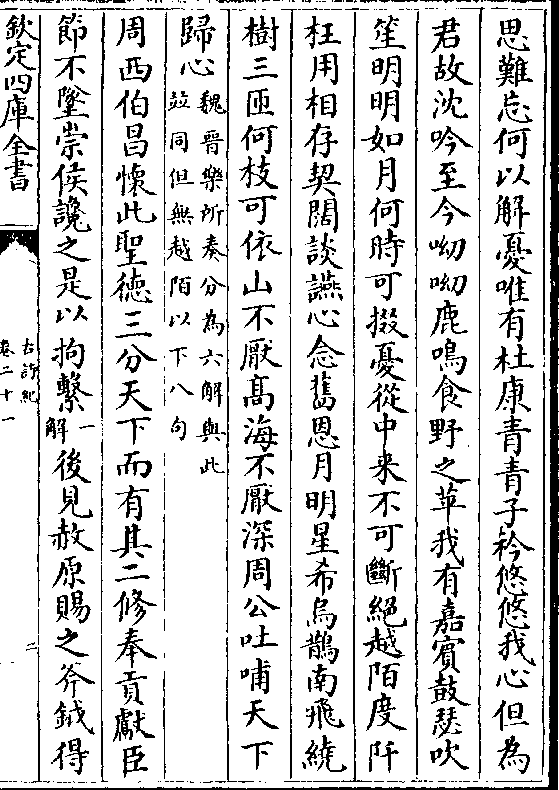 思難忘何以解憂唯有杜康青青子衿悠悠我心但為
君故沈吟至今呦呦鹿鳴食野之苹我有嘉賓鼓瑟吹
笙明明如月何時可掇憂從中来不可斷絕越陌度阡
枉用相存契闊談讌心念舊恩月明星希烏鵲南飛繞
樹三匝何枝可依山不厭髙海不厭深周公吐哺天下
歸心
魏晉樂所奏分為六解與此
竝同但無越陌以下八句
周西伯昌懷此聖徳三分天下而有其二修奉貢獻臣
節不墜崇侯讒之是以拘繫一解後見赦原賜之斧鉞得
欽定四庫全書
古詩紀
卷二十一
二